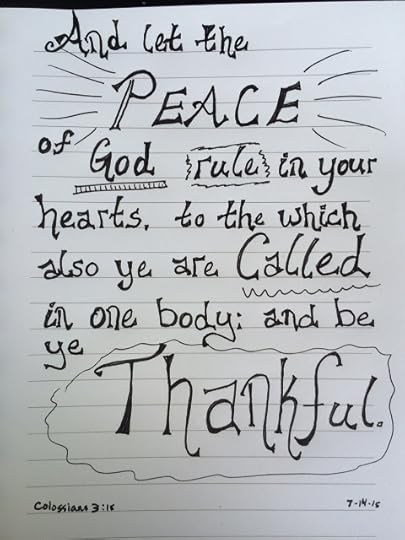 And let the
PEACE
of God rule in your
hearts, to the which
also ye are Called
in one body; and be
ye
Thankful.
Colossians 3:15 7-14-15